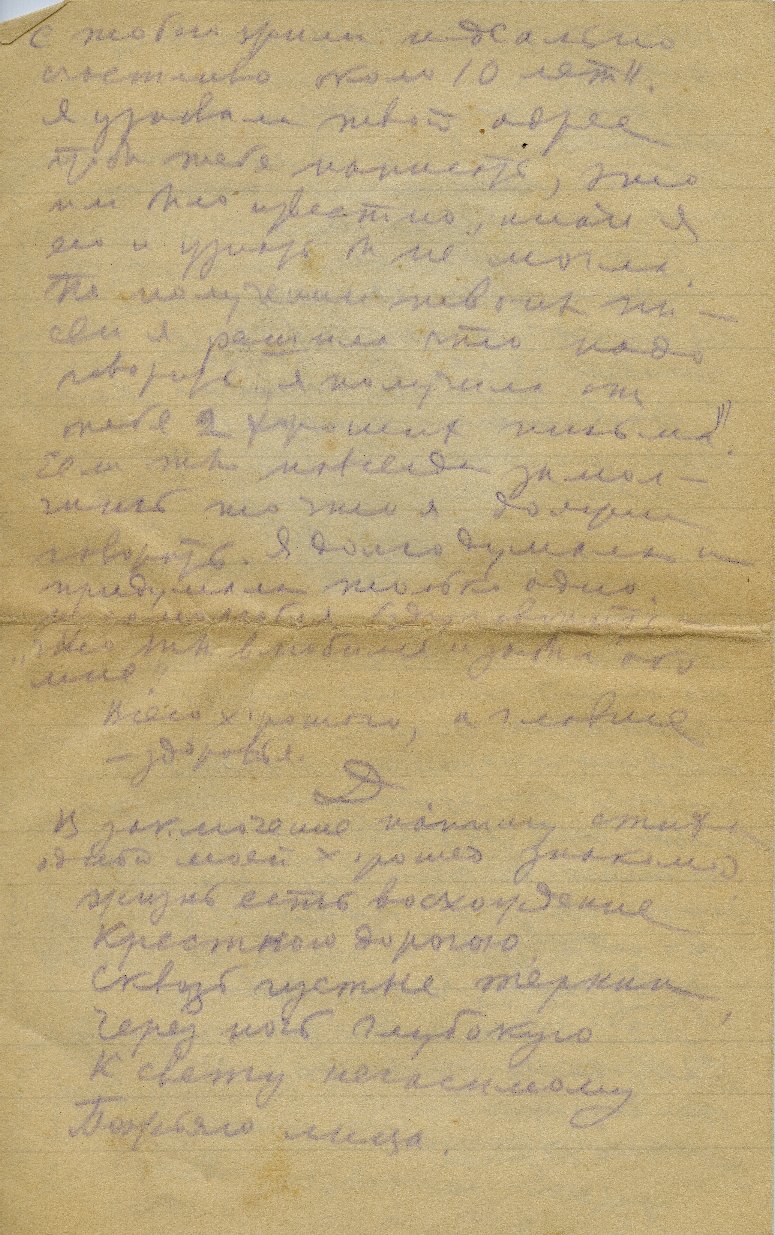 с тобою жили идеально
счастливо около 10 лет".
Я узнавала твой адрес
чтоб тебе написать, это
им было известно, иначе я
его и узнать бы не могла.
По получении твоих пи-
сем я решила что надо
говорить „я получила от
тебя 2 хороших письма".
Если ты навсегда замол-
чишь то что я должна
говорить. Я долго думала и
придумала только одно.
„что ты влюбился и забыл обо
мне"
Всего хорошого, а главное
– здоровья.
Д
В заключение напишу стихи
одной моей хорошей знакомой
Жизнь есть восхождение
Крестною дорогою,
Сквозь густые тернии,
Через ночь глубокую
К свету негасимому
Божьяго лица.